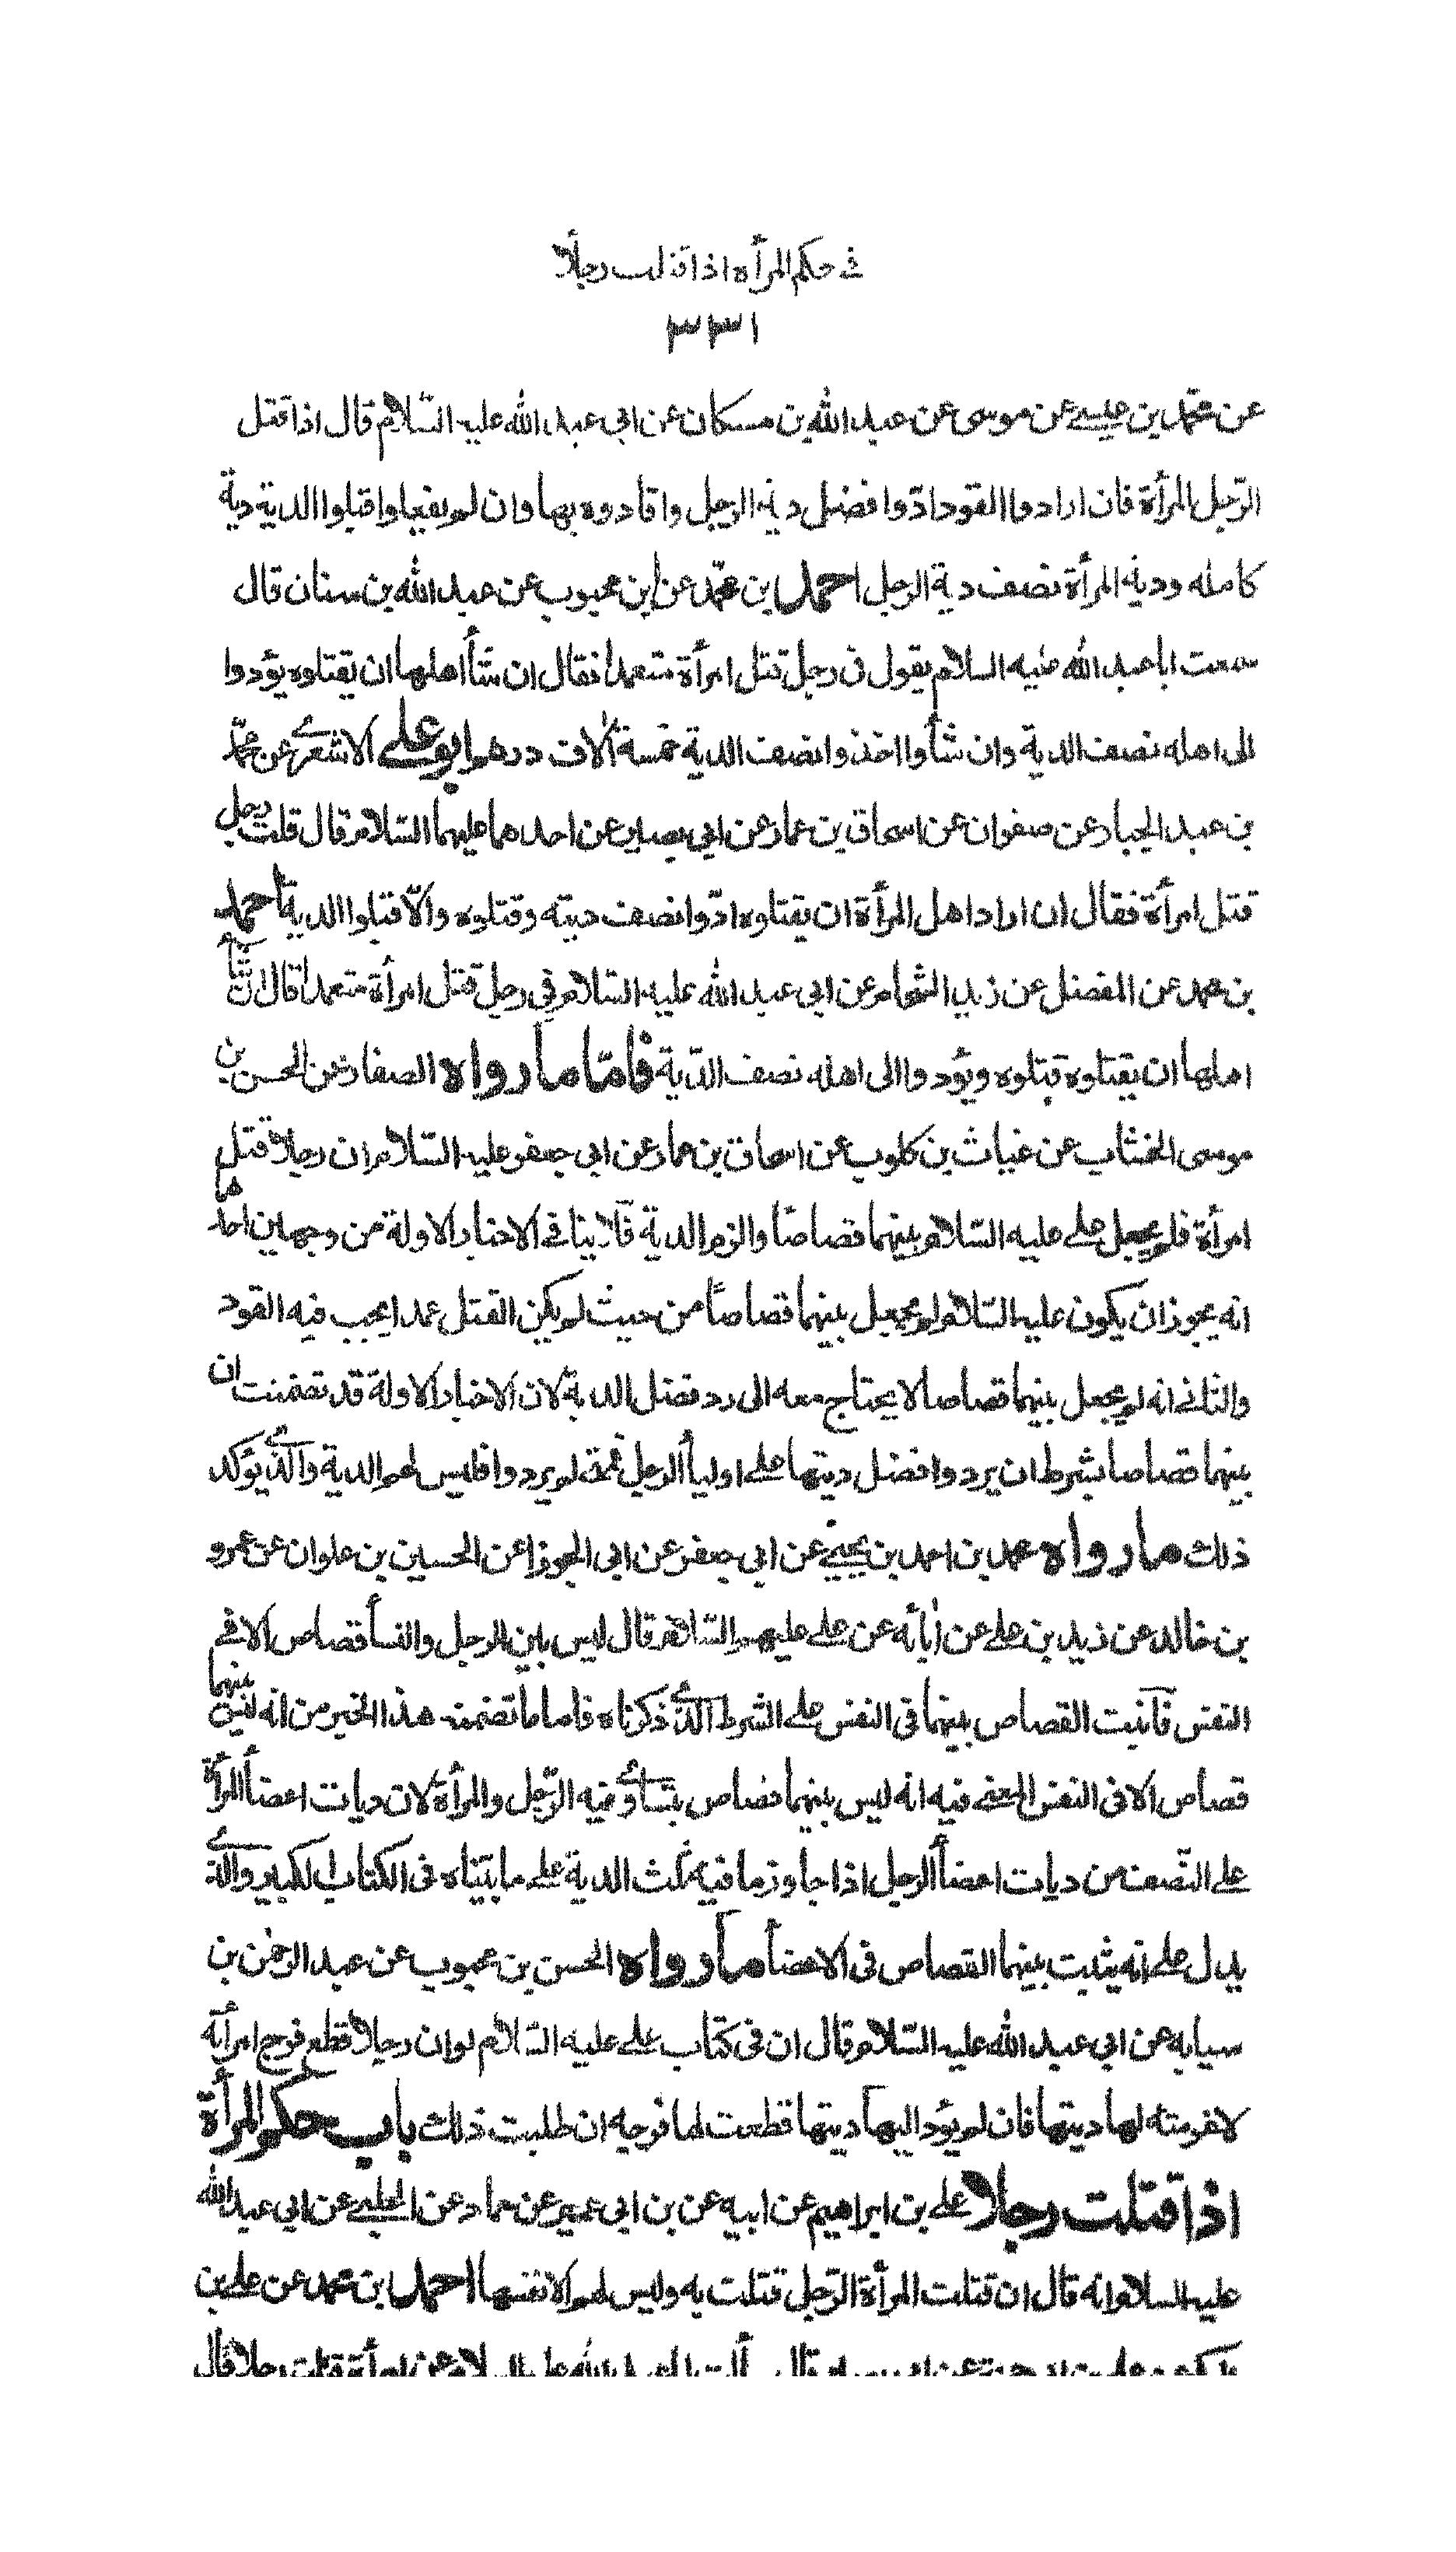 في حكم المرأة اذا قتلت رجلًا
٣٣١
عن محمّد بن عيسى عن موسى عن عبد الله بن مسكان عن ابي عبد الله عليه السّلام قال اذا قتل
الرّجل المرأة فان ارادوا القود ادّوا فضل دية الرجل واقادوه بها وان لم يفعلوا قبلوا الدية دية
كامله ودية المرأة نصف دية الرجل احمد بن محمّد عن ابن محبوب عن عبد الله بن سنان قال
سمعت ابا عبد الله عليه السلام يقول في رجل قتل امرأة متعمدا فقال ان شأ اهلها ان يقتلوه يؤدوا
الى اهله نصف الدية وان شأوا اخذوا نصف الدية خمسة آلاف درهم ابو علي الاشعري عن محمّد
بن عبد الجبار عن صفوان عن اسحاق بن عمار عن ابي بصير عن احدهما عليهما السّلام قال قلت رجل
قتل امرأة فقال ان اراد اهل المرأة ان يقتلوه ادّوا نصف ديته وقتلوه والّا قبلوا الدية احمد
بن محمد عن المفضل عن زيد الشحام عن ابي عبد الله عليه السّلام في رجل قتل امرأة متعمدا قال ان شأ
اهلها ان يقتلوه قتلوه ويؤدوا الى اهله نصف الدّية فامّا ما رواه الصفار عن الحسن بن
موسى الخشاب عن غياث بن كلوب عن اسحاق بن عمار عن ابي جعفر عليه السّلام ان رجلا قتل
امرأة فلم يجعل علي عليه السّلام بينهما قصاصًا والزم الدية فلا ينافي الاخبار الاولة من وجهين احدهما
انه يجوز ان يكون عليه السّلام لم يجعل بينهما قصاصًا من حيث لم يكن القتل عمدا يجب فيه القود
والثاني انه لم يجعل بينهما قصاصا لا يحتاج معه الى رد فضل الدية لان الاخبار الاولة قد تضمنت ان
بينهما قصاصا بشرط ان يردوا فضل ديتها على اوليأ الرجل فمتى لم يردوا فليس لهم الدية والذي يؤكد
ذلك ما رواه محمد بن احمد بن يحيى عن ابي جعفر عن ابي الجوزا عن الحسين بن علوان عن عمرو
بن خالد عن زيد بن علي عن آبائه عن علي عليهم السّلام قال ليس بين الرجل والنسأ قصاص الا في
النفس فأثبت القصاص بينهما في النفس على الشرط الذي ذكرناه فاما ما تضمنه هذا الخبر من انه ليس بينهما
قصاص الا في النفس المعنى فيه انه ليس بينهما قصاص يتساوى فيه الرّجل والمرأة لان ديات اعضأ المرأة
على النّصف من ديات اعضأ الرجل اذا جاوز ما فيه ثلث الدية على ما بيّناه في الكتاب الكبير والذي
يدل على انه يثبت بينهما القصاص في الاعضأ ما رواه الحسن بن محبوب عن عبد الرحمٰن بن
سيابه عن ابي عبد الله عليه السّلام قال ان في كتاب علي عليه السّلام لو ان رجلا قطع فرج امرأته
لاغرمته لها ديتها فان لم يؤد اليها ديتها قطعت لها فرجه ان طلبت ذلك باب حكم المرأة
اذا قتلت رجلا علي بن ابراهيم عن ابيه عن بن ابي عمير عن حماد عن الحلبي عن ابي عبد الله
عليه السلام انه قال ان قتلت المرأة الرّجل قتلت به وليس لهم الا نفسها احمد بن محمد عن علي بن